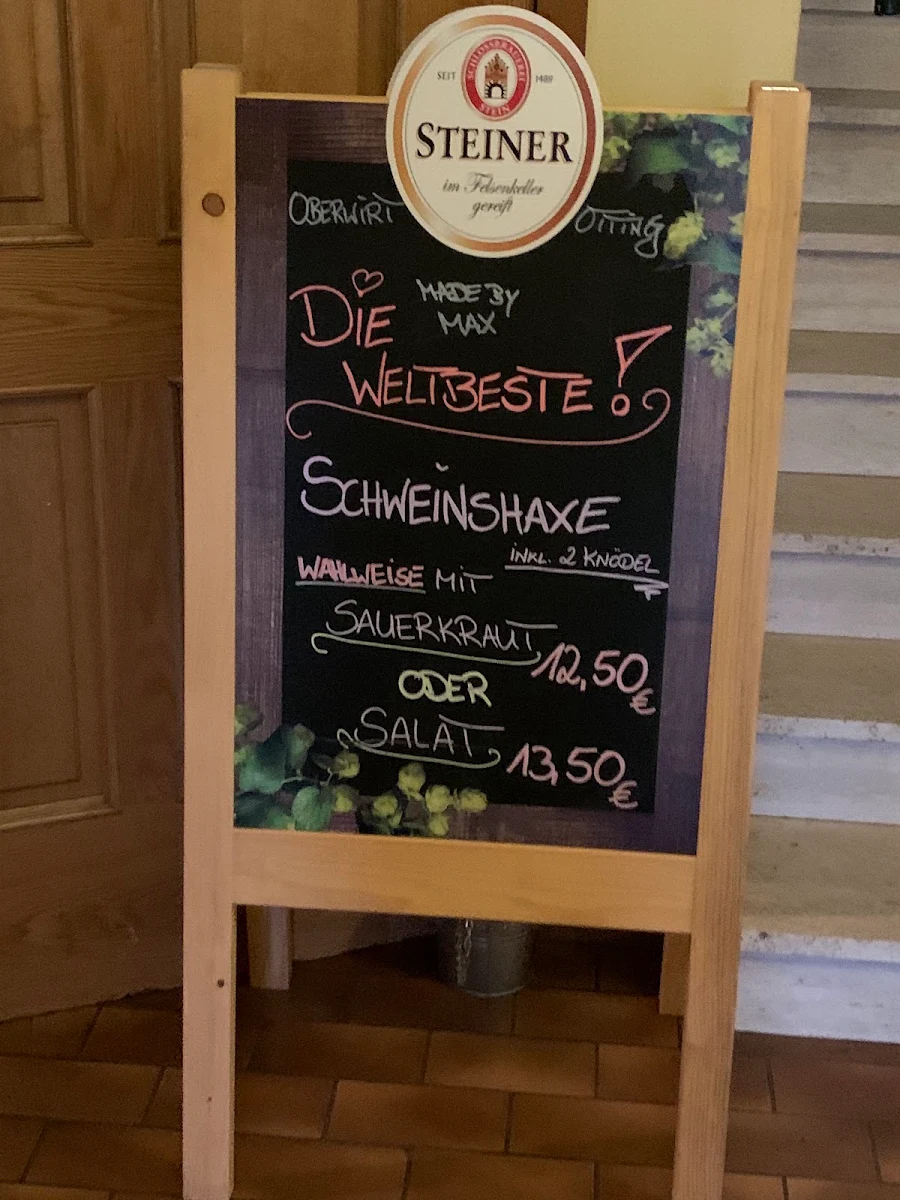 SCHLOSSBRAUEREI
STEIN
SEIT 1489
STEINER
im Felsenkeller
gereift
OBERWIRT OTTING
DIE MADE BY
MAX
WELTBESTE!
SCHWEINSHAXE
INKL. 2 KNÖDEL
WAHLWEISE MIT
SAUERKRAUT 12,50 €
ODER
SALAT 13,50 €